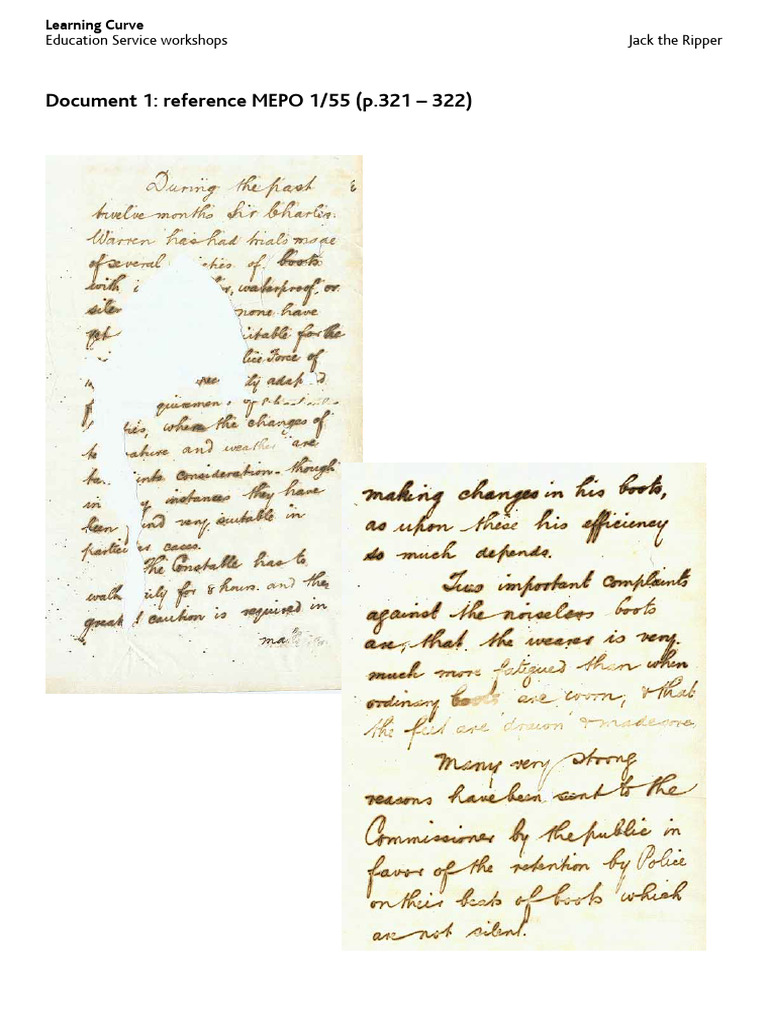 Learning Curve
Education Service workshops
Jack the Ripper
Document 1: reference MEPO 1/55 (p.321 – 322)
During the past
twelve months Sir Charles
Warren has had trials made
of several ties of boots
with waterproof, or
silen none have
yet itable for the
lice Force of
ly adap d
quiremen of
ties, where the changes of
te ature and weather are
ta into consideration. though
in y instances they have
been und very suitable in
particul rs cases.
The Constable has to
walk ily for 8 hours. and the
great caution is required in
making changes in his boots,
as upon these his efficiency
so much depends.
Two important complaints
against the noiseless boots
are, that the wearer is very
much more fatigued than when
ordinary boots are worn, & that
the feet are 'drawn' & made sore.
Many very strong
reasons have been sent to the
Commissioner by the public in
favor of the retention by Police
on their beats of boots which
are not silent.